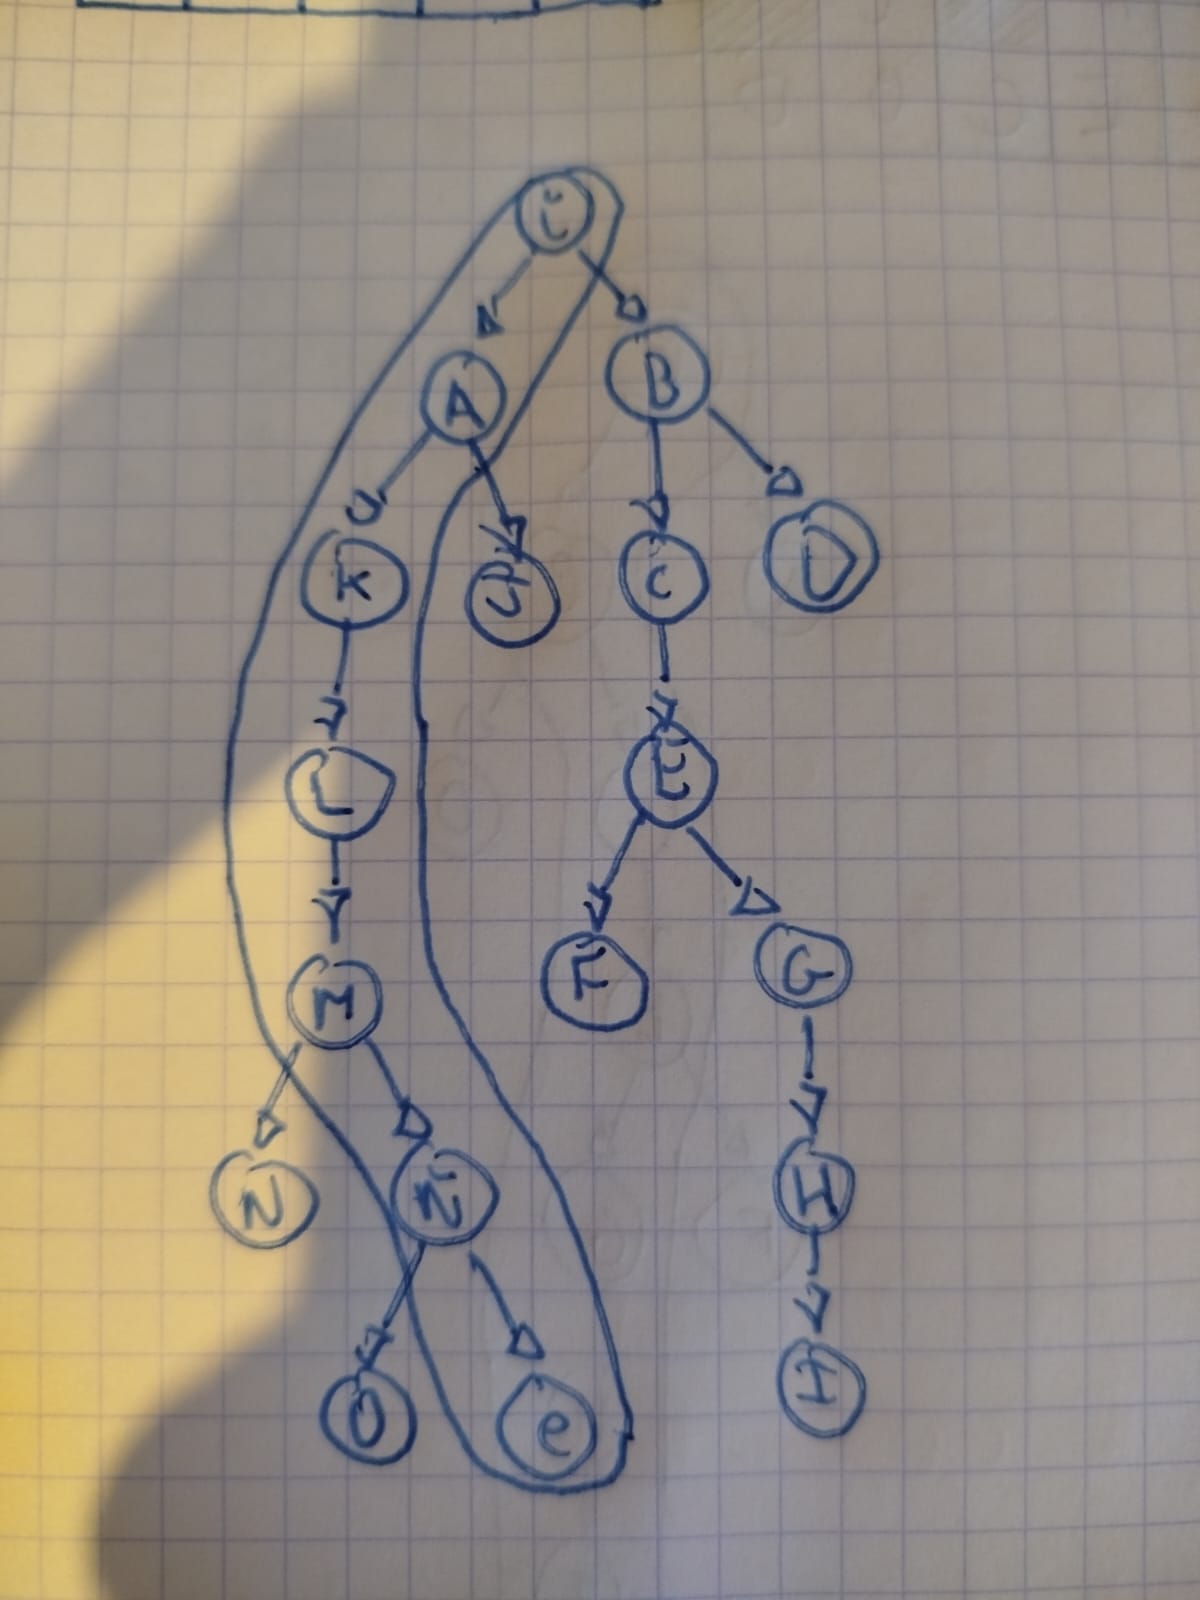 i
A B
K J C D
L E
M F G
N Ñ I
O e H